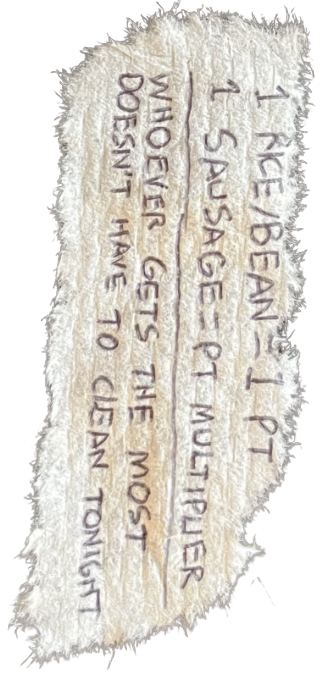 1 RICE/BEAN = 1 PT
1 SAUSAGE = PT MULTIPLIER
WHOEVER GETS THE MOST
DOESN'T HAVE TO CLEAN TONIGHT